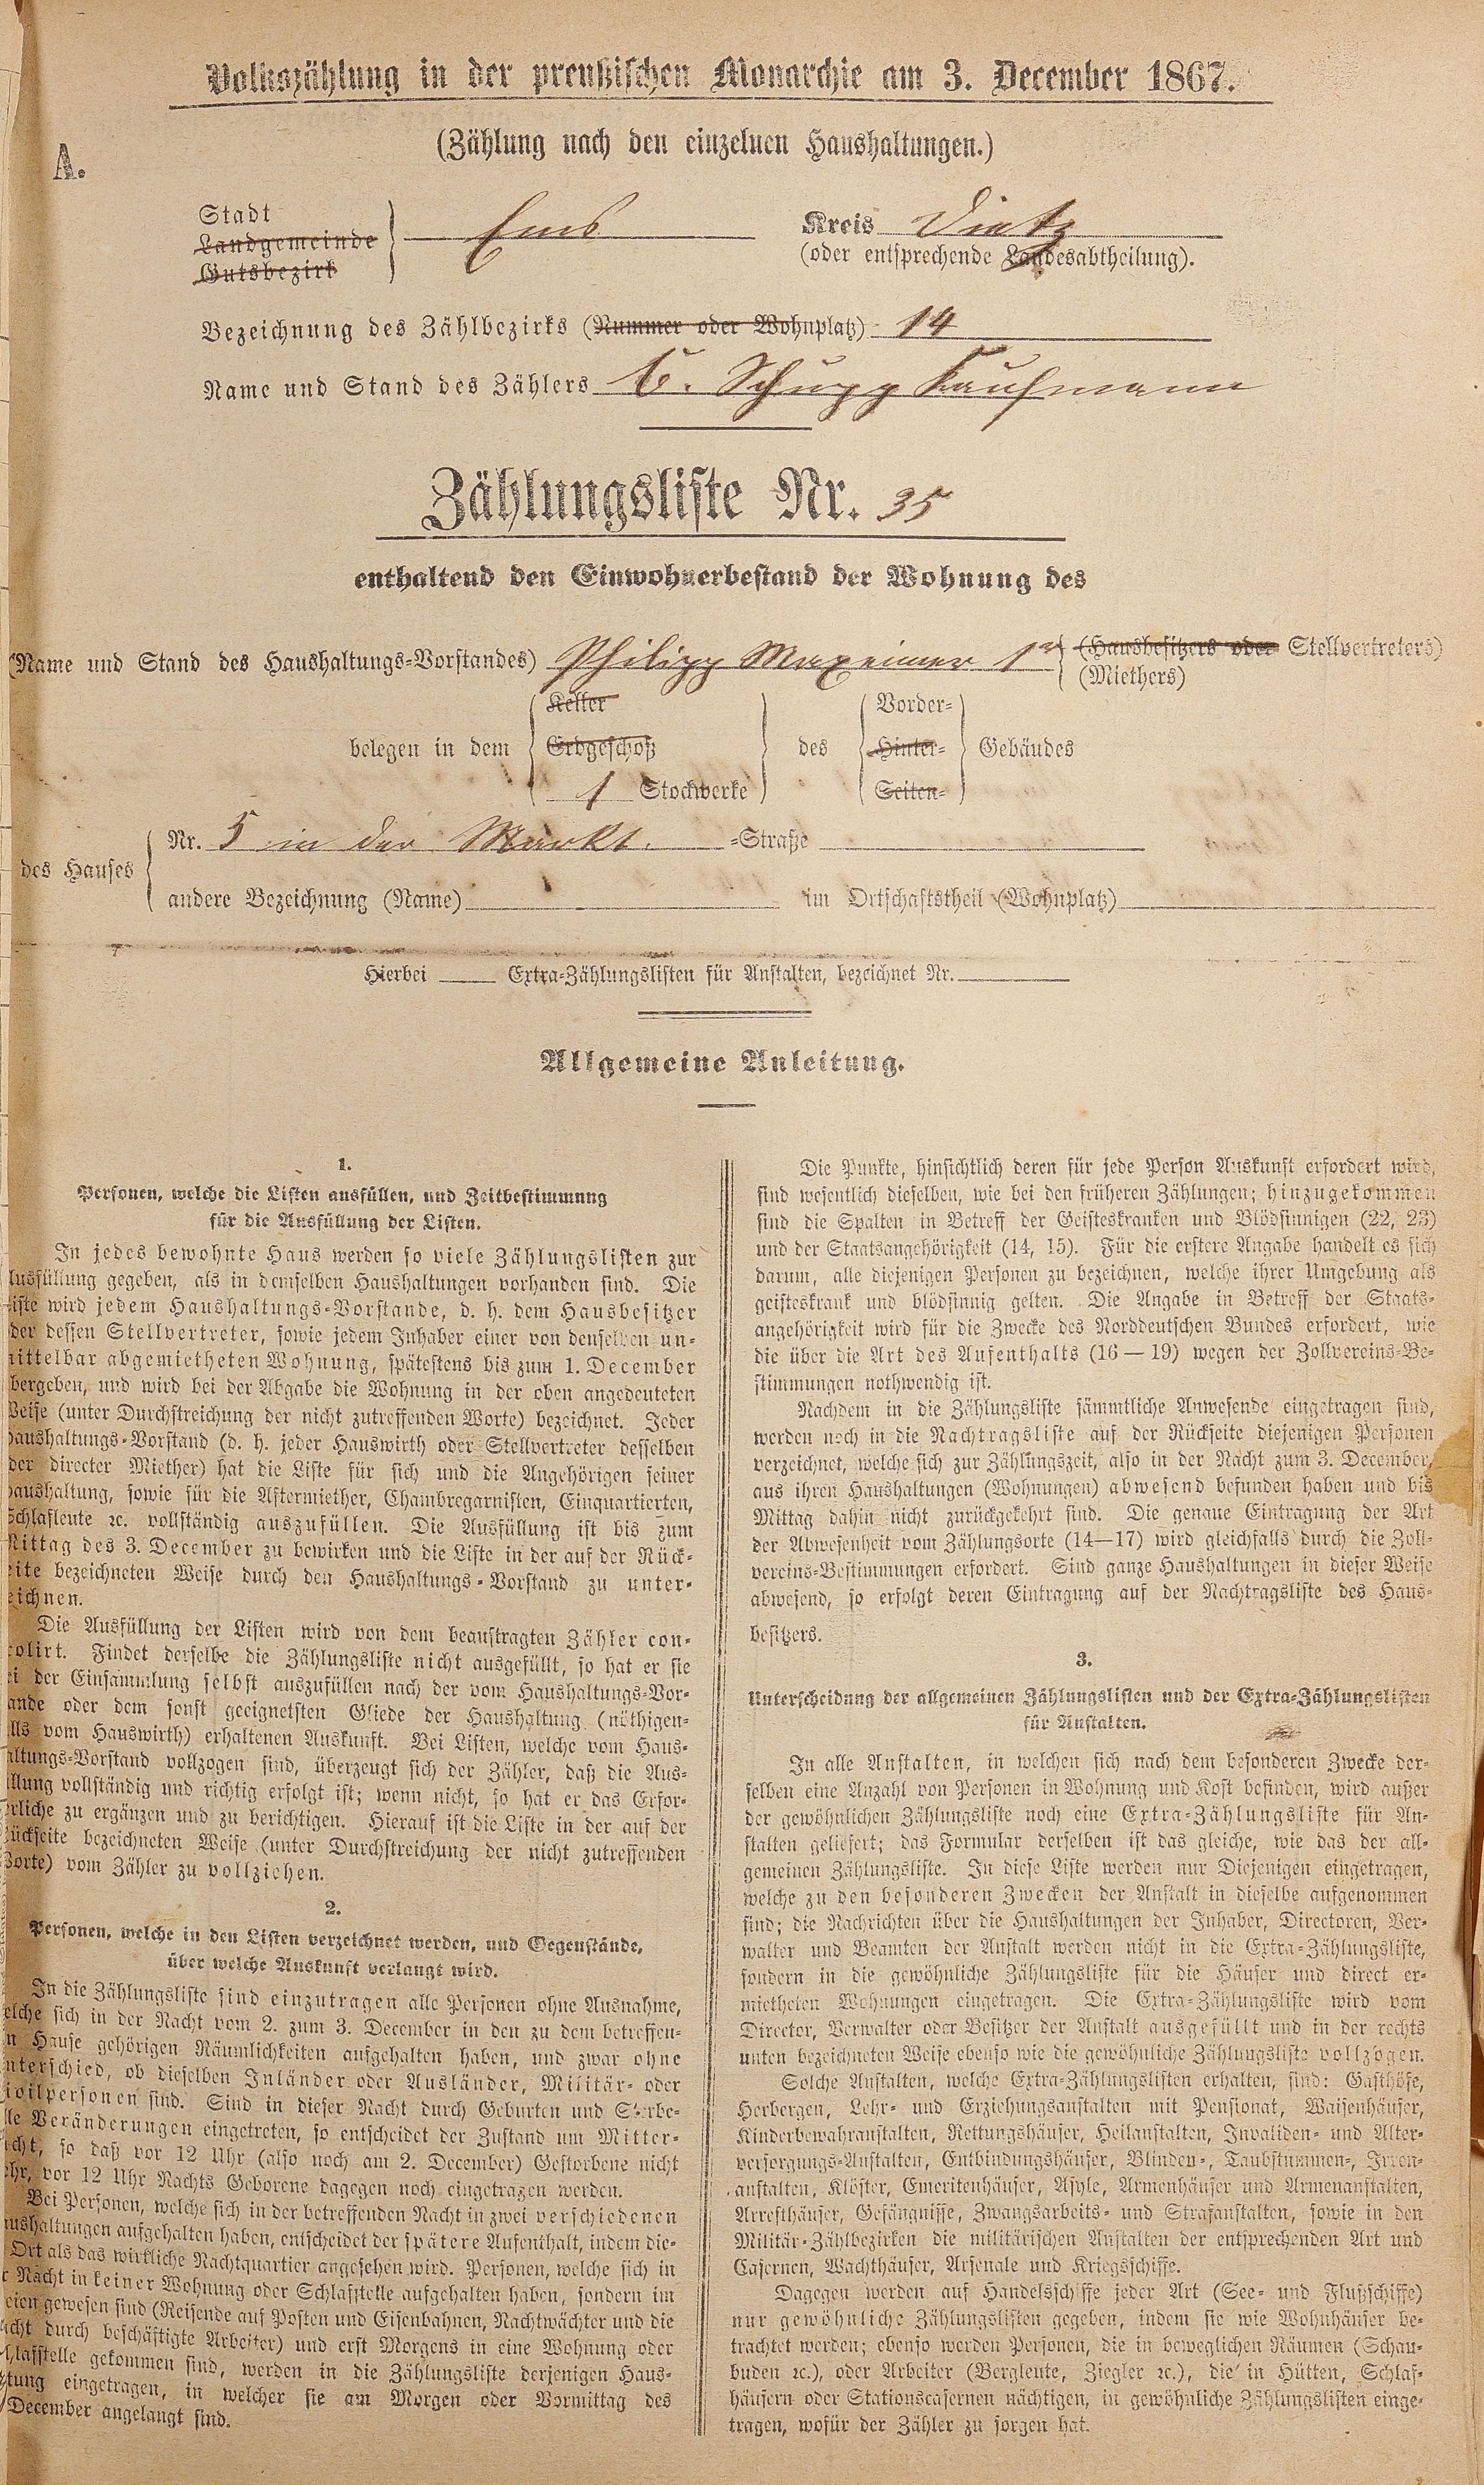 Volkszählung in der preußischen Monarchie am 3. December 1867.
(Zählung nach den einzelnen Haushaltungen.)
A.
Stadt
Landgemeinde
Gutsbezirk
Ems
Kreis Dietz
(oder entsprechende Landesabtheilung).
Bezeichnung des Zählbezirks (Nummer oder Wohnplatz) 14
Name und Stand des Zählers C. Schupp Kaufmann
Zählungsliste Nr. 35
enthaltend den Einwohnerbestand der Wohnung des
(Name und Stand des Haushaltungs-Vorstandes) Philipp Maxeiner 1r (Hausbesitzers oder Stellvertreters)
(Miethers)
Keller Vorder-
belegen in dem Erdgeschoß des Hinter- Gebäudes
1 Stockwerke Seiten-
des Hauses
Nr. 5 in der Markt. -Straße
andere Bezeichnung (Name) im Ortschaftstheil (Wohnplatz)
Hierbei Extra-Zählungslisten für Anstalten, bezeichnet Nr.
Allgemeine Anleitung.
1.
Personen, welche die Listen ausfüllen, und Zeitbestimmung
für die Ausfüllung der Listen.
In jedes bewohnte Haus werden so viele Zählungslisten zur
Ausfüllung gegeben, als in demselben Haushaltungen vorhanden sind. Die
Liste wird jedem Haushaltungs-Vorstande, d. h. dem Hausbesitzer
oder dessen Stellvertreter, sowie jedem Inhaber einer von denselben un-
mittelbar abgemietheten Wohnung, spätestens bis zum 1. December
übergeben, und wird bei der Abgabe die Wohnung in der oben angedeuteten
Weise (unter Durchstreichung der nicht zutreffenden Worte) bezeichnet. Jeder
Haushaltungs-Vorstand (d. h. jeder Hauswirth oder Stellvertreter desselben
oder directer Miether) hat die Liste für sich und die Angehörigen seiner
Haushaltung, sowie für die Aftermiether, Chambregarnisten, Einquartierten,
Schlafleute ꝛc. vollständig auszufüllen. Die Ausfüllung ist bis zum
Mittag des 3. December zu bewirken und die Liste in der auf der Rück-
seite bezeichneten Weise durch den Haushaltungs-Vorstand zu unter-
zeichnen.
Die Ausfüllung der Listen wird von dem beauftragten Zähler con-
trolirt. Findet derselbe die Zählungsliste nicht ausgefüllt, so hat er sie
bei der Einsammlung selbst auszufüllen nach der vom Haushaltungs-Vor-
stande oder dem sonst geeignetsten Gliede der Haushaltung (nöthigen-
falls vom Hauswirth) erhaltenen Auskunft. Bei Listen, welche vom Haus-
haltungs-Vorstand vollzogen sind, überzeugt sich der Zähler, daß die Aus-
füllung vollständig und richtig erfolgt ist; wenn nicht, so hat er das Erfor-
derliche zu ergänzen und zu berichtigen. Hierauf ist die Liste in der auf der
Rückseite bezeichneten Weise (unter Durchstreichung der nicht zutreffenden
Worte) vom Zähler zu vollziehen.
2.
Personen, welche in den Listen verzeichnet werden, und Gegenstände,
über welche Auskunft verlangt wird.
In die Zählungsliste sind einzutragen alle Personen ohne Ausnahme,
welche sich in der Nacht vom 2. zum 3. December in den zu dem betreffen-
den Hause gehörigen Räumlichkeiten aufgehalten haben, und zwar ohne
Unterschied, ob dieselben Inländer oder Ausländer, Militär- oder
Civilpersonen sind. Sind in dieser Nacht durch Geburten und Sterbe-
fälle Veränderungen eingetreten, so entscheidet der Zustand um Mitter-
nacht, so daß vor 12 Uhr (also noch am 2. December) Gestorbene nicht
mehr, vor 12 Uhr Nachts Geborene dagegen noch eingetragen werden.
Bei Personen, welche sich in der betreffenden Nacht in zwei verschiedenen
Haushaltungen aufgehalten haben, entscheidet der spätere Aufenthalt, indem die-
ser Ort als das wirkliche Nachtquartier angesehen wird. Personen, welche sich in
der Nacht in keiner Wohnung oder Schlafstelle aufgehalten haben, sondern im
Freien gewesen sind (Reisende auf Posten und Eisenbahnen, Nachtwächter und die
Nacht durch beschäftigte Arbeiter) und erst Morgens in eine Wohnung oder
Schlafstelle gekommen sind, werden in die Zählungsliste derjenigen Haus-
haltung eingetragen, in welcher sie am Morgen oder Vormittag des
3. December angelangt sind.
Die Punkte, hinsichtlich deren für jede Person Auskunft erfordert wird,
sind wesentlich dieselben, wie bei den früheren Zählungen; hinzugekommen
sind die Spalten in Betreff der Geisteskranken und Blödsinnigen (22, 23)
und der Staatsangehörigkeit (14, 15). Für die erstere Angabe handelt es sich
darum, alle diejenigen Personen zu bezeichnen, welche ihrer Umgebung als
geisteskrank und blödsinnig gelten. Die Angabe in Betreff der Staats-
angehörigkeit wird für die Zwecke des Norddeutschen Bundes erfordert, wie
die über die Art des Aufenthalts (16—19) wegen der Zollvereins-Be-
stimmungen nothwendig ist.
Nachdem in die Zählungsliste sämmtliche Anwesende eingetragen sind,
werden noch in die Nachtragsliste auf der Rückseite diejenigen Personen
verzeichnet, welche sich zur Zählungszeit, also in der Nacht zum 3. December,
aus ihren Haushaltungen (Wohnungen) abwesend befunden haben und bis
Mittag dahin nicht zurückgekehrt sind. Die genaue Eintragung der Art
der Abwesenheit vom Zählungsorte (14—17) wird gleichfalls durch die Zoll-
vereins-Bestimmungen erfordert. Sind ganze Haushaltungen in dieser Weise
abwesend, so erfolgt deren Eintragung auf der Nachtragsliste des Haus-
besitzers.
3.
Unterscheidung der allgemeinen Zählungslisten und der Extra-Zählungslisten
für Anstalten.
In alle Anstalten, in welchen sich nach dem besonderen Zwecke der-
selben eine Anzahl von Personen in Wohnung und Kost befinden, wird außer
der gewöhnlichen Zählungsliste noch eine Extra-Zählungsliste für An-
stalten geliefert; das Formular derselben ist das gleiche, wie das der all-
gemeinen Zählungsliste. In diese Liste werden nur Diejenigen eingetragen,
welche zu den besonderen Zwecken der Anstalt in dieselbe aufgenommen
sind; die Nachrichten über die Haushaltungen der Inhaber, Directoren, Ver-
walter und Beamten der Anstalt werden nicht in die Extra-Zählungsliste,
sondern in die gewöhnliche Zählungsliste für die Häuser und direct er-
mietheten Wohnungen eingetragen. Die Extra-Zählungsliste wird vom
Director, Verwalter oder Besitzer der Anstalt ausgefüllt und in der rechts
unten bezeichneten Weise ebenso wie die gewöhnliche Zählungsliste vollzogen.
Solche Anstalten, welche Extra-Zählungslisten erhalten, sind: Gasthöfe,
Herbergen, Lehr- und Erziehungsanstalten mit Pensionat, Waisenhäuser,
Kinderbewahranstalten, Rettungshäuser, Heilanstalten, Invaliden- und Alter-
versorgungs-Anstalten, Entbindungshäuser, Blinden-, Taubstummen-, Irren-
anstalten, Klöster, Emeritenhäuser, Asyle, Armenhäuser und Armenanstalten,
Arresthäuser, Gefängnisse, Zwangsarbeits- und Strafanstalten, sowie in den
Militär-Zählbezirken die militärischen Anstalten der entsprechenden Art und
Casernen, Wachthäuser, Arsenale und Kriegsschiffe.
Dagegen werden auf Handelsschiffe jeder Art (See- und Flußschiffe)
nur gewöhnliche Zählungslisten gegeben, indem sie wie Wohnhäuser be-
trachtet werden; ebenso werden Personen, die in beweglichen Räumen (Schau-
buden ꝛc.), oder Arbeiter (Bergleute, Ziegler ꝛc.), die in Hütten, Schlaf-
häusern oder Stationscasernen nächtigen, in gewöhnliche Zählungslisten einge-
tragen, wofür der Zähler zu sorgen hat.